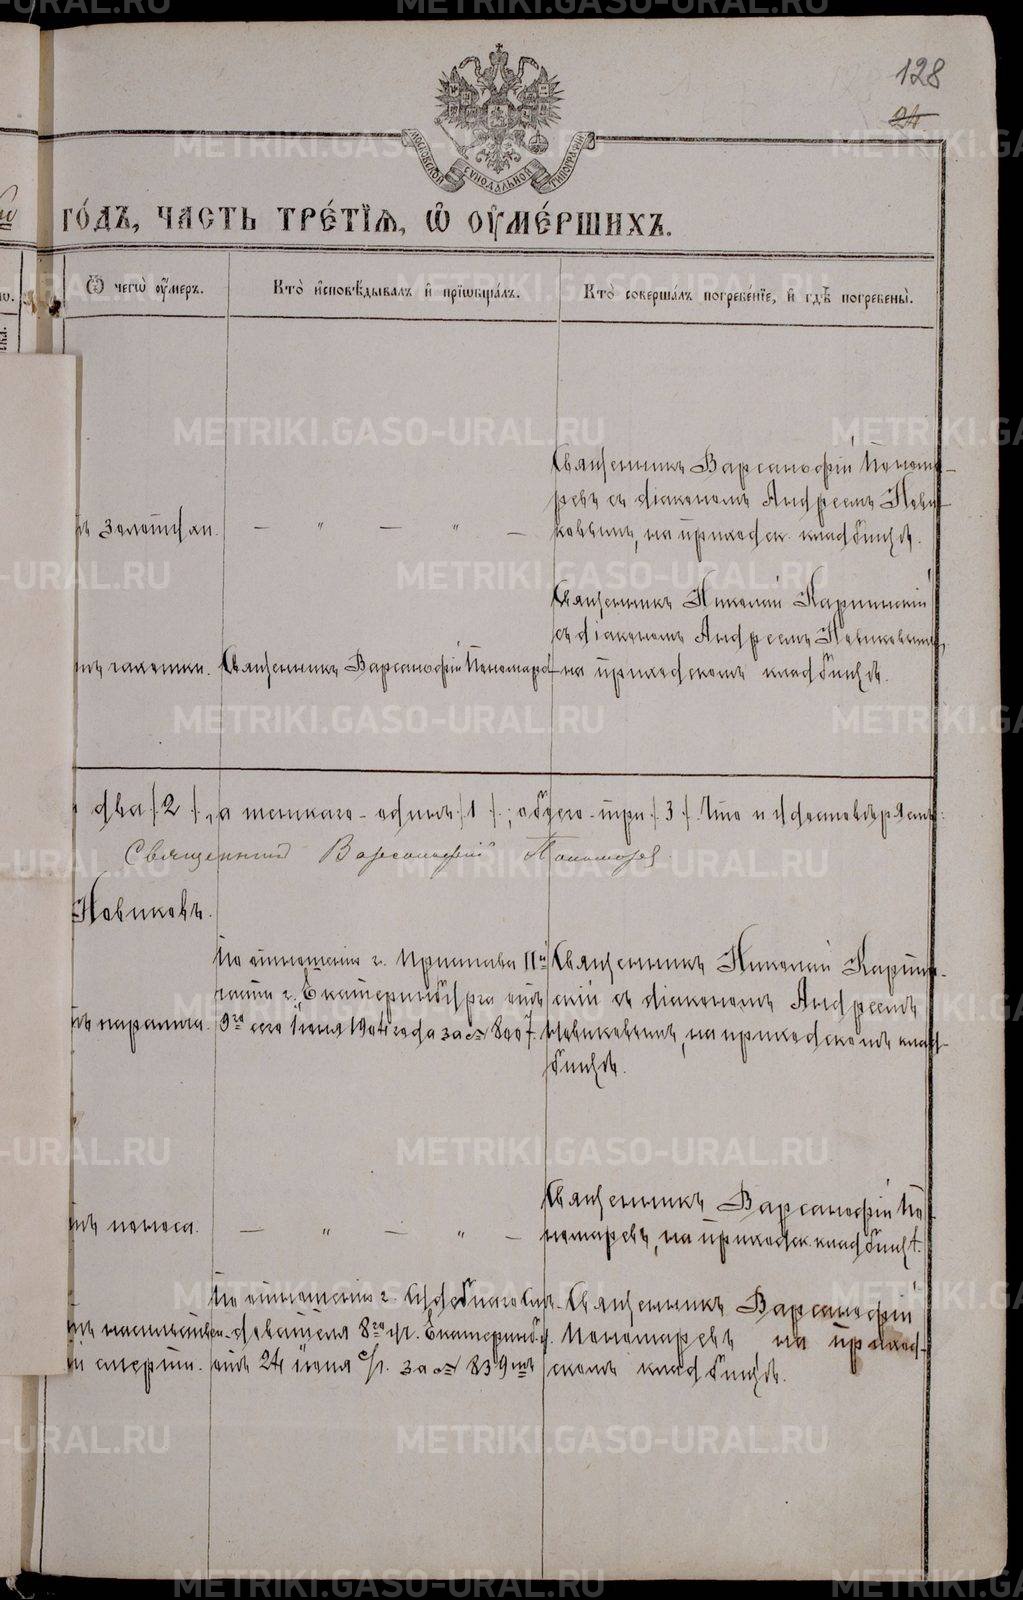 128
24
МОСКОВСКОЙ СУНОДАЛЬНОЙ ТИПОГРАФІИ
ГО́ДЪ, ЧАСТЬ ТРЕ́ТІѦ, Ѽ ОУ҆МЕ́РШИХЪ.
Ѿ чегѡ̀ оу҆́меръ.
Кто̀ и҆сповѣ́дывалъ и҆ прїѡбща́лъ.
Кто̀ соверша́лъ погребе́нїе, и҆ гдѣ̀ погребены̀.
ъ золотухи.
— " — " —
Священникъ Варсанофій Понома-
ревъ съ діакономъ Андреемъ Нови-
ковымъ, на приходск. кладбищѣ.
тъ чахотки.
Священникъ Варсанофій Пономаревъ
Священникъ Николай Карпинскій
съ діакономъ Андреемъ Новиковымъ,
на приходскомъ кладбищѣ.
два /2/, а женскаго - одинъ /1/; обоего - три /3/. Что и удостовѣряемъ:
Священникъ Варсанофій Пономаревъ
Новиковъ.
ъ паралича.
По отношенію г. Пристава IIй
части г. Екатеринбурга отъ
9го сего Іюня 1904 года за № 8007.
Священникъ Николай Карпин-
скій съ діакономъ Андреемъ
Новиковымъ, на приходскомъ клад-
бищѣ.
тъ поноса.
— " — " —
Священникъ Варсанофій По-
номаревъ, на приходск. кладбищѣ.
тъ насильствен-
й смерти.
По отношенію г. Судебнаго Слѣ-
дователя 8го уч. Екатеринб. у.
отъ 24 іюня с/г. за № 839мъ
Священникъ Варсанофій
Пономаревъ на приход-
скомъ кладбищѣ.
METRIKI.GASO-URAL.RU